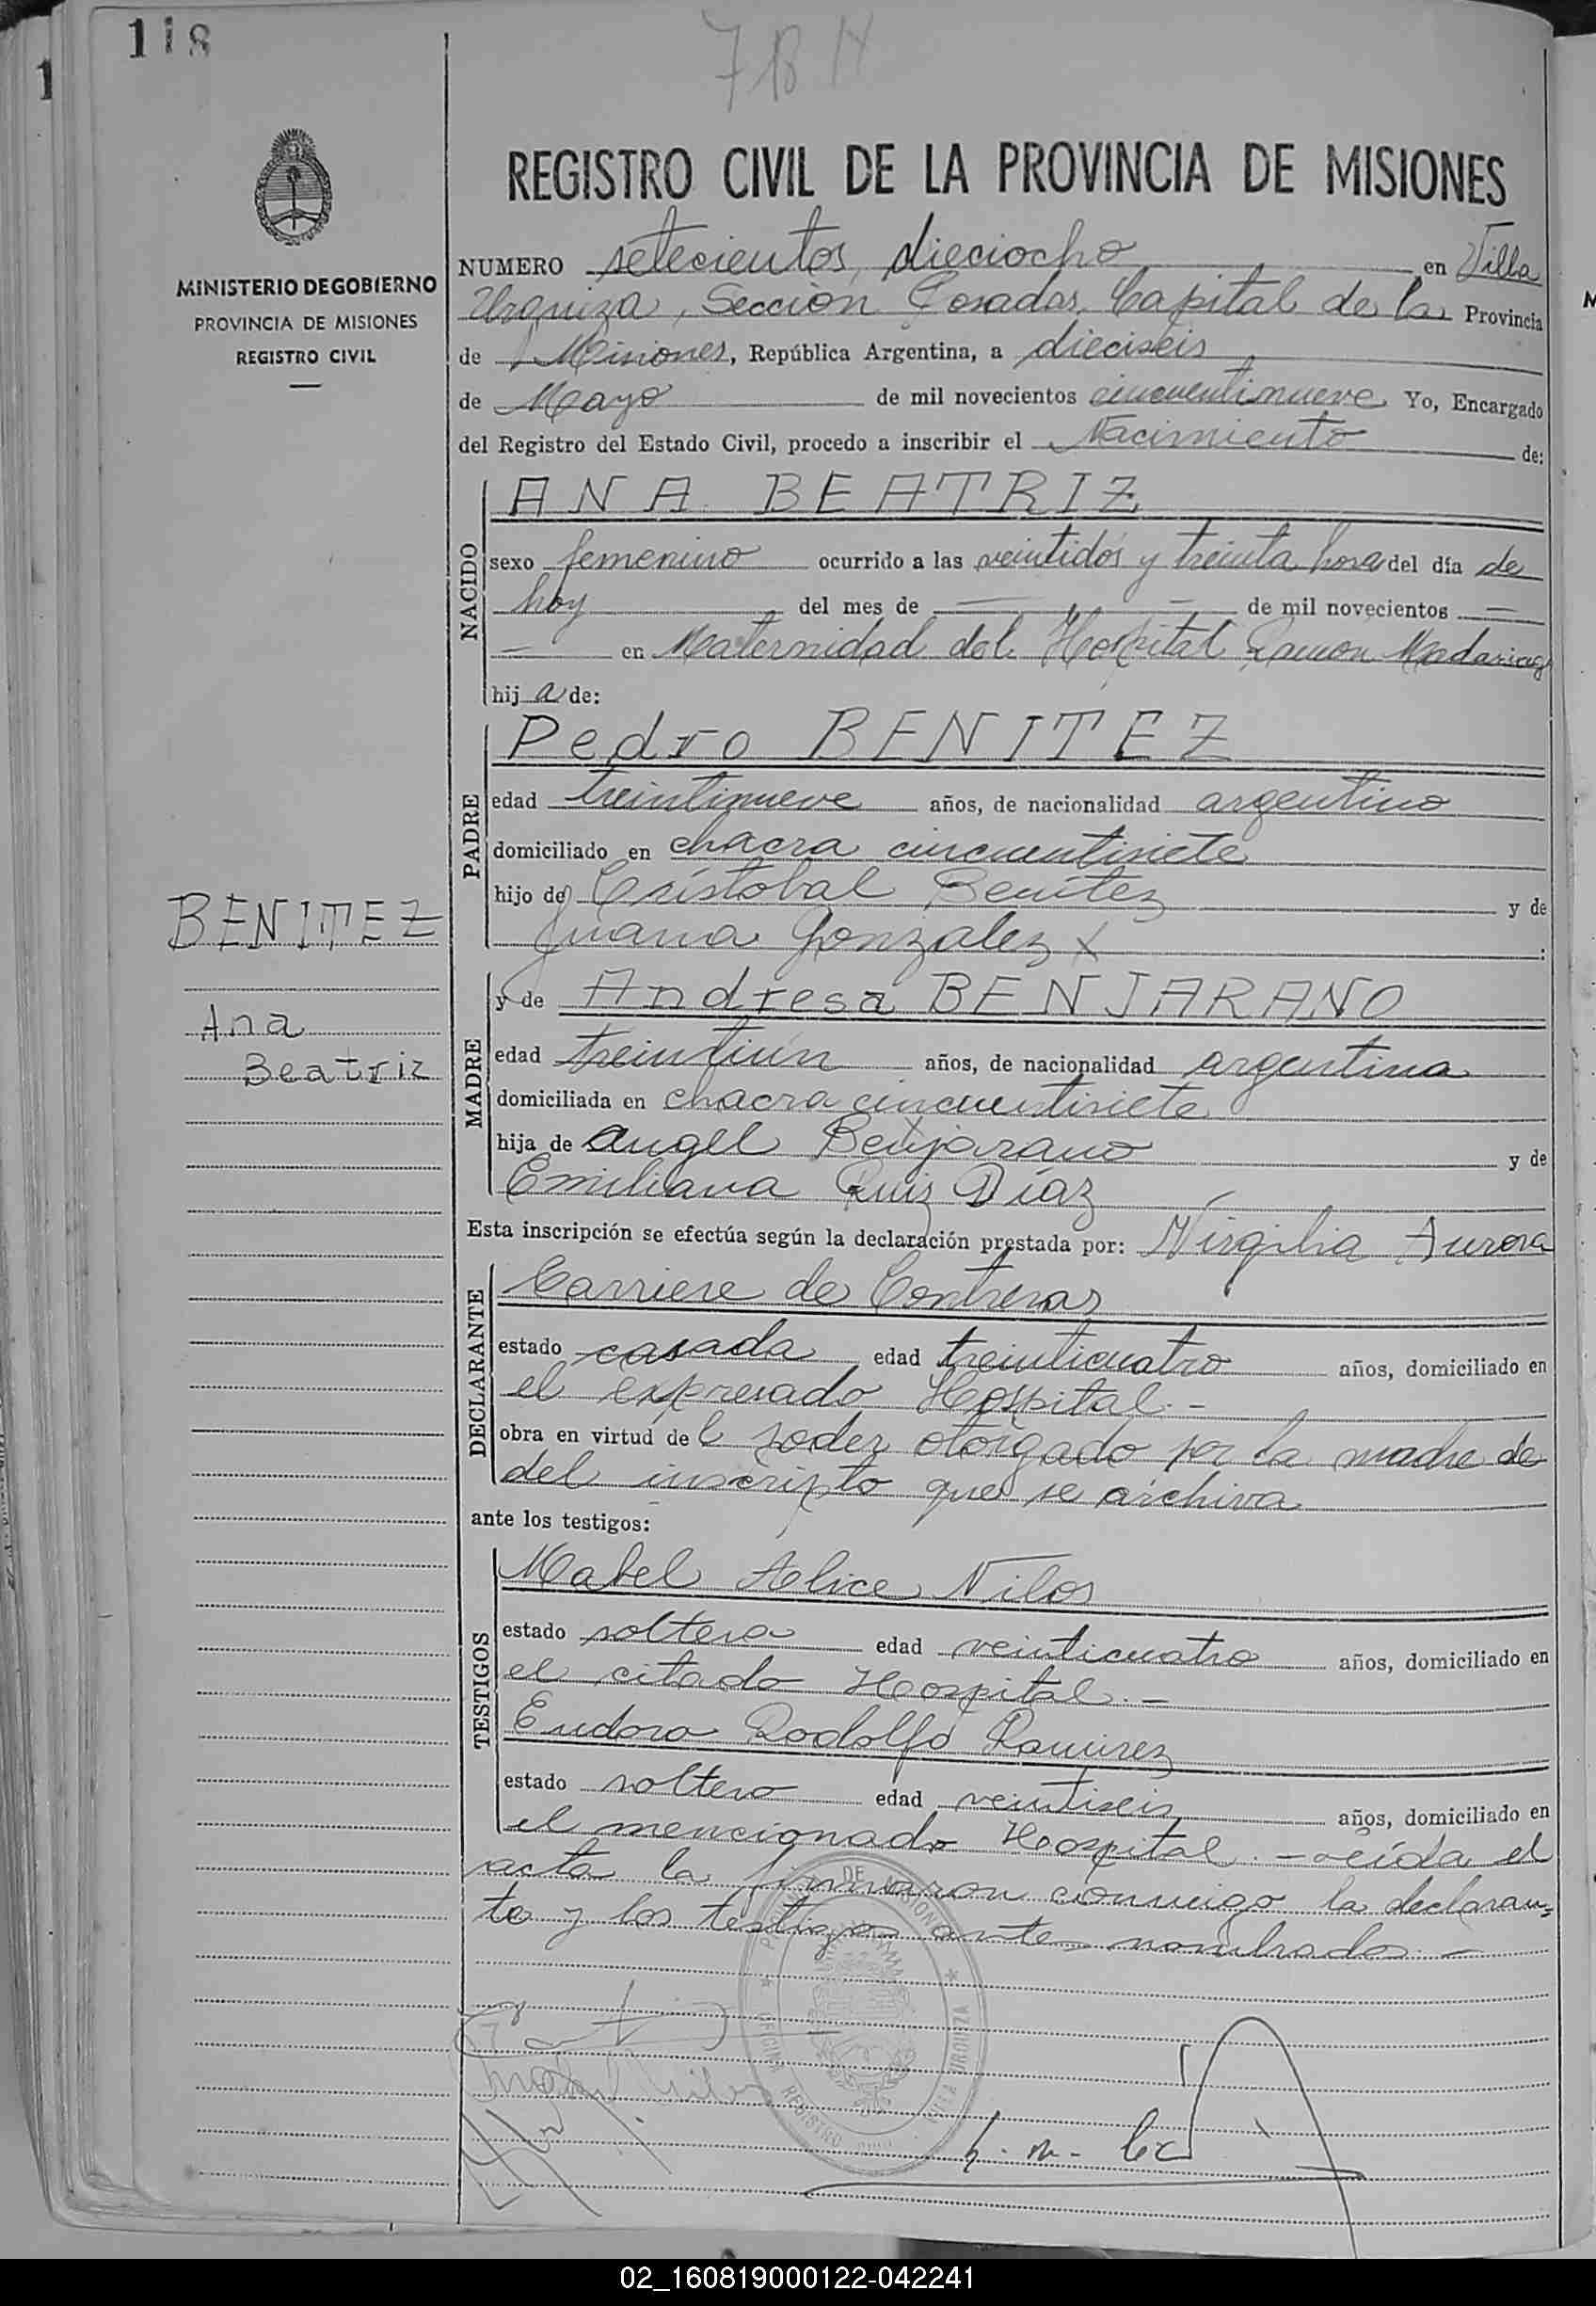 118
1
718
REGISTRO CIVIL DE LA PROVINCIA DE MISIONES
MINISTERIO DE GOBIERNO
PROVINCIA DE MISIONES
REGISTRO CIVIL
NUMERO setecientos dieciocho en Villa
Urquiza, Sección Posadas, Capital de la Provincia
de Misiones, República Argentina, a dieciseis
de Mayo de mil novecientos cincuentinueve Yo, Encargado
del Registro del Estado Civil, procedo a inscribir el Nacimiento de:
NACIDO
ANA BEATRIZ
sexo femenino ocurrido a las veintidós y treinta horas del día de
hoy del mes de — — de mil novecientos —
— en Maternidad del Hospital Ramon Madariag
hij a de:
PADRE
Pedro BENITEZ
edad treintinueve años, de nacionalidad argentino
domiciliado en chacra cincuentisiete
hijo de Cristobal Benítez y de
Juana Gonzalez x :
BENITEZ
Ana
Beatriz
MADRE
y de Andresa BENJARANO
edad treintiún años, de nacionalidad argentina
domiciliada en chacra cincuentisiete
hija de Angel Benjarano y de
Emiliana Ruiz Díaz
Esta inscripción se efectúa según la declaración prestada por: Virgilia Aurora
DECLARANTE
Carriere de Contreras
estado casada edad treinticuatro años, domiciliado en
el expresado Hospital.-
obra en virtud de l poder otorgado por la madre de
del inscripto que se archiva
ante los testigos:
TESTIGOS
Mabel Alice Nilos
estado soltera edad veinticuatro años, domiciliado en
el citado Hospital.-
Eudoro Rodolfo Ramirez
estado soltero edad veintiseis años, domiciliado en
el mencionado Hospital.- leída el
acta la firmaron conmigo la declaran=
te y los testigos ante nombrados.-
OFICINA REGISTRO CIVIL VILLA URQUIZA
02_160819000122-042241